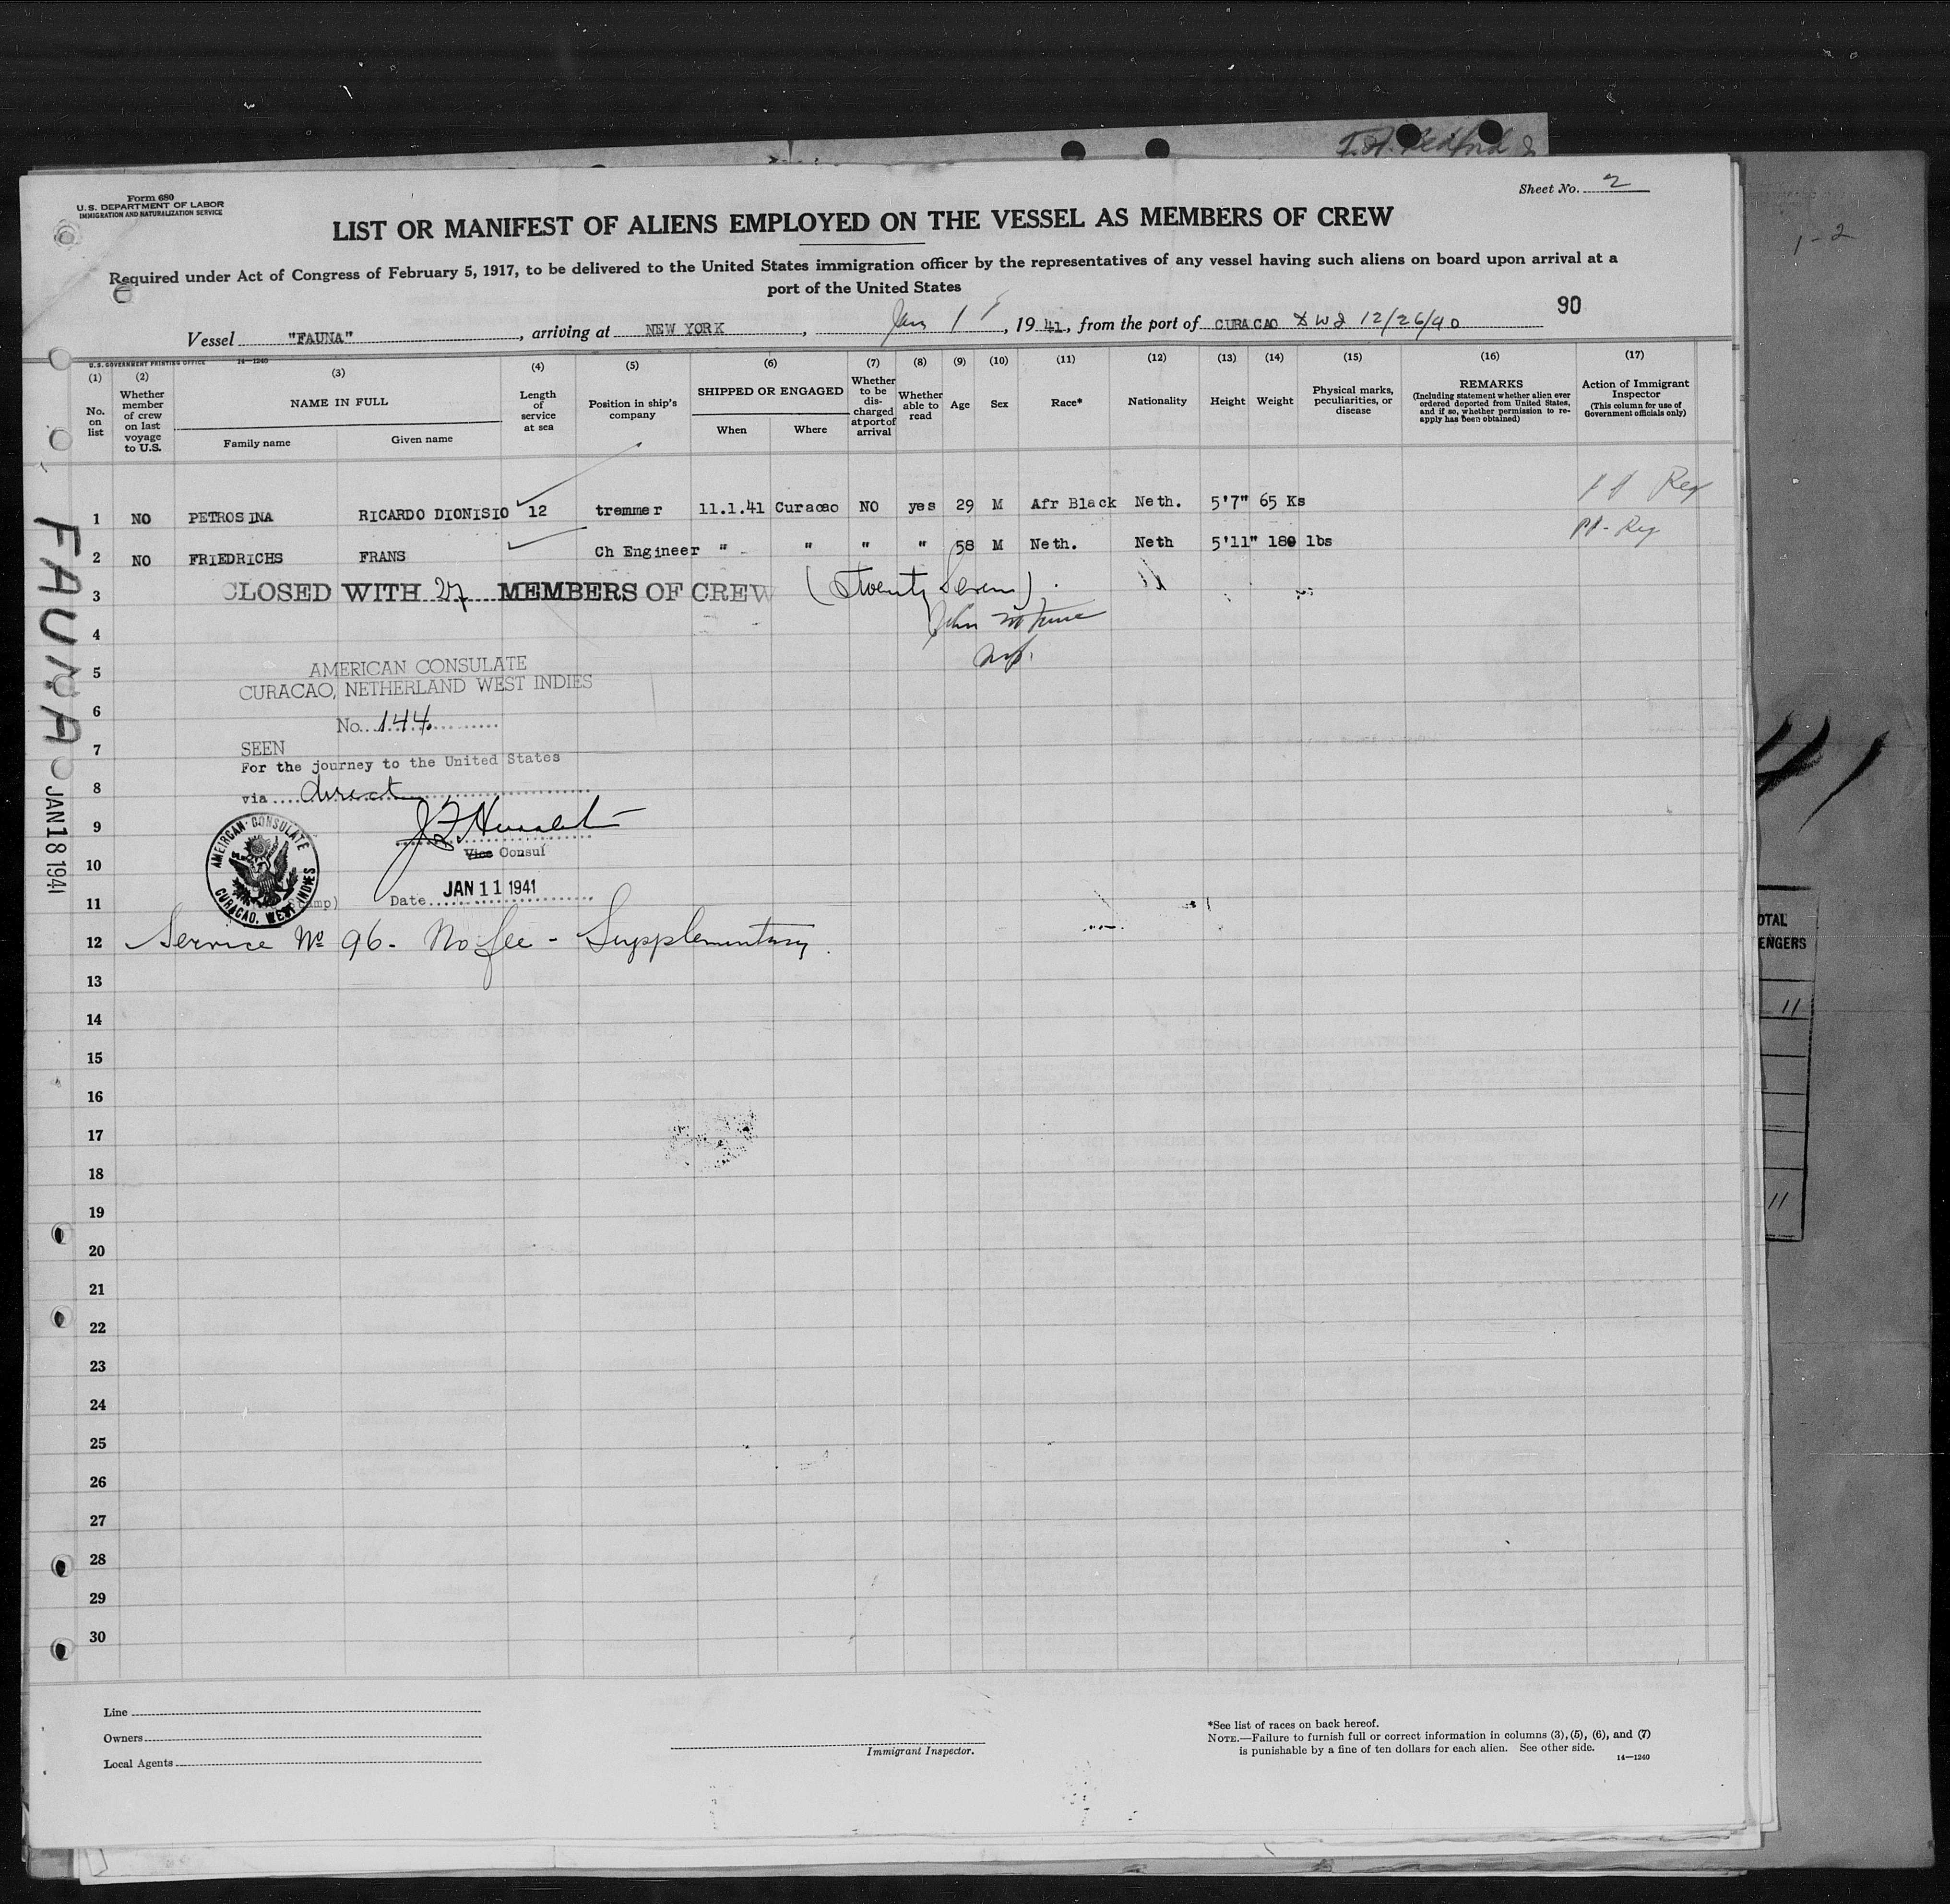 Form 680
U. S. DEPARTMENT OF LABOR
IMMIGRATION AND NATURALIZATION SERVICE
Sheet No. 2
LIST OR MANIFEST OF ALIENS EMPLOYED ON THE VESSEL AS MEMBERS OF CREW
Required under Act of Congress of February 5, 1917, to be delivered to the United States immigration officer by the representatives of any vessel having such aliens on board upon arrival at a
port of the United States
90
Vessel "FAUNA", arriving at NEW YORK, Jan 1, 1941, from the port of CURACAO 12/26/40
U. S. GOVERNMENT PRINTING OFFICE 14—1240
(1) No. on list
(2) Whether member of crew on last voyage to U.S.
(3) NAME IN FULL Family name Given name
(4) Length of service at sea
(5) Position in ship's company
(6) SHIPPED OR ENGAGED When Where
(7) Whether to be discharged at port of arrival
(8) Whether able to read
(9) Age
(10) Sex
(11) Race*
(12) Nationality
(13) Height
(14) Weight
(15) Physical marks, peculiarities, or disease
(16) REMARKS (Including statement whether alien ever ordered deported from United States, and if so, whether permission to reapply has been obtained)
(17) Action of Immigrant Inspector (This column for use of Government officials only)
1 NO PETROSINA RICARDO DIONISIO 12 tremmer 11.1.41 Curacao NO yes 29 M Afr Black Neth. 5'7" 65 Ks Reg
2 NO FRIEDRICHS FRANS Ch Engineer " " " " 58 M Neth. Neth 5'11" 180 lbs Reg
3 CLOSED WITH 27 MEMBERS OF CREW (Twenty Seven).
4 John
5 AMERICAN CONSULATE
CURACAO, NETHERLAND WEST INDIES
6 No. 144
7 SEEN
For the journey to the United States
8 via direct
9
Vice Consul
10
AMERICAN CONSULATE
CURACAO, WEST INDIES
11 Date JAN 11 1941
12 Service No 96 - No fee - Supplementary.
13
14
15
16
17
18
19
20
21
22
23
24
25
26
27
28
29
30
FAUNA
JAN 18 1941
Line
Owners
Local Agents
Immigrant Inspector.
*See list of races on back hereof.
NOTE.—Failure to furnish full or correct information in columns (3), (5), (6), and (7)
is punishable by a fine of ten dollars for each alien. See other side.
14—1240
1-2
41
OTAL
ENGERS
11
11